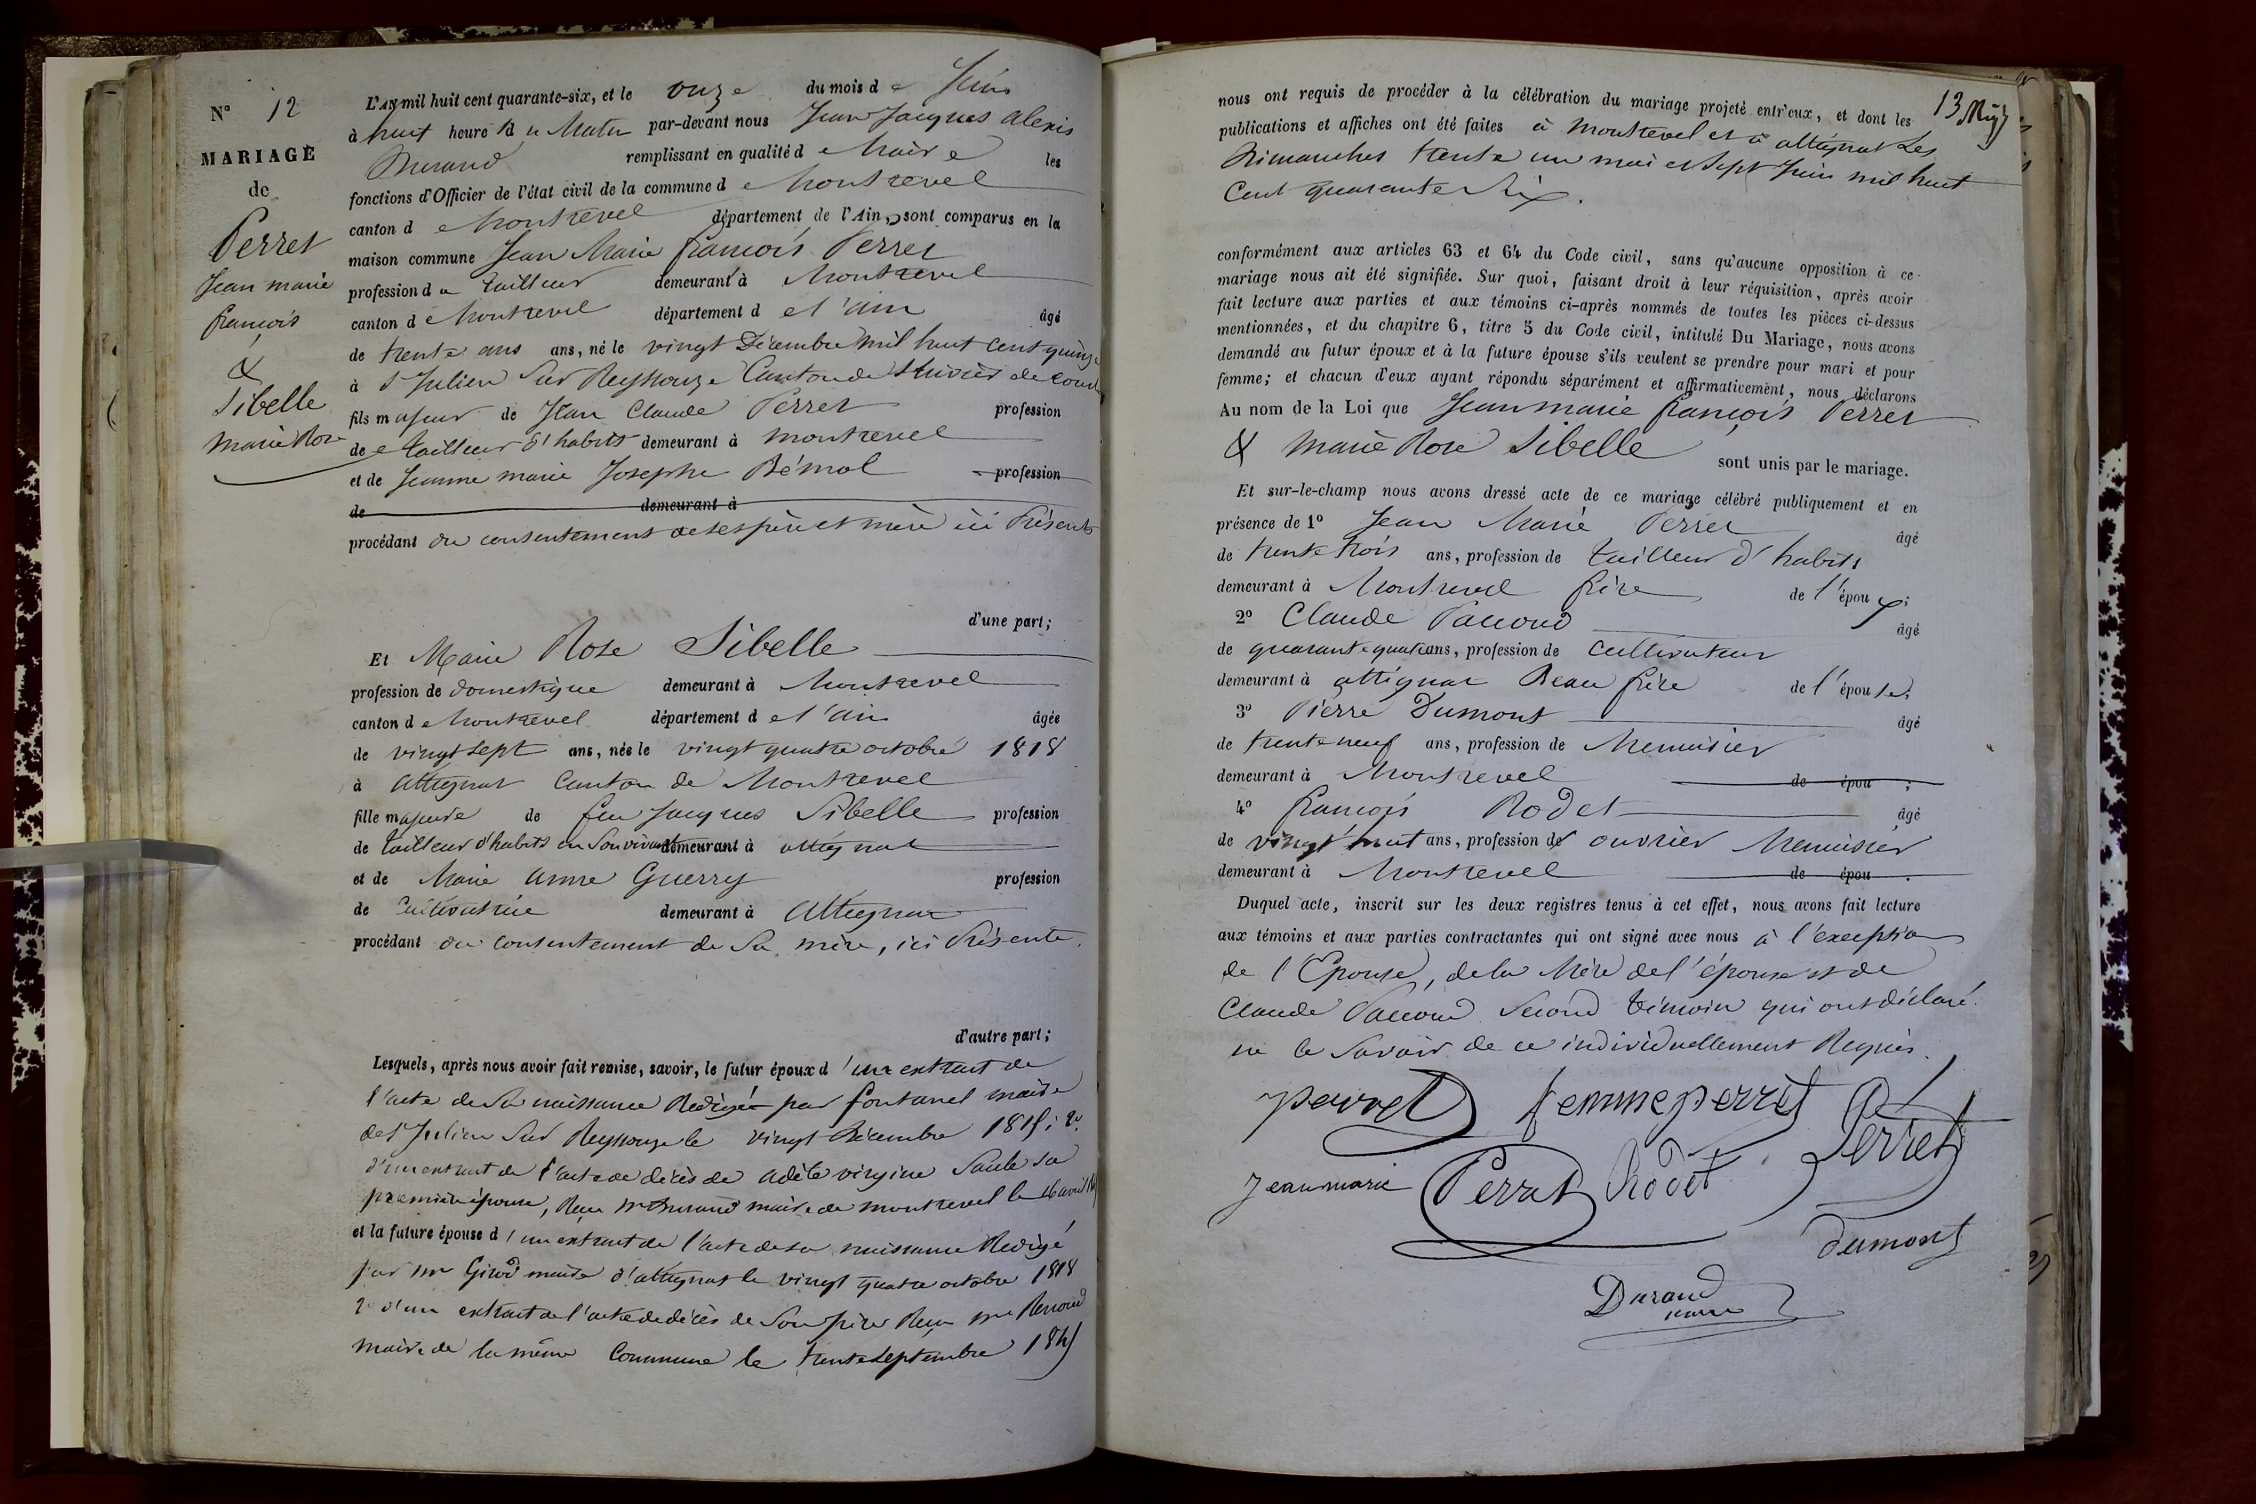 N° 12
MARIAGE
de
Perret
Jean marie
françois
&
Sibelle
Marie Rose
L'An mil huit cent quarante-six, et le onze du mois de Juin
à huit heure du Matin par-devant nous Jean Jacques Alexis
Durand remplissant en qualité de Maire les
fonctions d'Officier de l'état civil de la commune de Montrevel
canton de Montrevel département de l'Ain, sont comparus en la
maison commune Jean Marie françois Perret
profession de tailleur demeurant à Montrevel
canton de Montrevel département de l'ain âgé
de trente ans ans, né le vingt Décembre mil huit cent quinze
à St Julien Sur Reyssouze Canton de St trivier de Cour
fils majeur de Jean Claude Perret profession
de tailleur d'habits demeurant à montrevel
et de Jeanne marie Josephe profession
de demeurant à
procédant du consentement de ses père et mère ici Présents
d'une part;
Et Marie Rose Sibelle
profession de domestique demeurant à Montrevel
canton de Montrevel département de l'ain âgée
de vingt sept ans, née le vingt quatre octobre 1818
à attignat Canton de Montrevel
fille majeure de feu Jacques Sibelle profession
de tailleur d'habits en Son vivant demeurant à attignat
et de Marie anne Guerry profession
de Cultivatrice demeurant à Attignat
procédant du consentement de Sa mère, ici Présente.
d'autre part;
Lesquels, après nous avoir fait remise, savoir, le futur époux d'un extrait de
l'acte de Sa naissance Redigé par fontanel maire
de St Julien Sur Reyssouze le vingt Décembre 1815; 2°
d'un extrait de l'acte de décès de adèle virgine Saule sa
première épouse, Reçu Mr Durand maire de montrevel le 16 avril
et la future épouse d'un extrait de l'acte de sa naissance Redigé
par Mr Girod maire d'attignat le vingt quatre octobre 1818
2° d'un extrait de l'acte de décès de Son père Reçu Mr Renoud
maire de la même Commune le trente Septembre 1845
13
nous ont requis de procéder à la célébration du mariage projeté entr'eux, et dont les
publications et affiches ont été faites à Montrevel et à attignat Les
Dimanches trente un mai et Sept Juin mil huit
Cent quarante Six.
conformément aux articles 63 et 64 du Code civil, sans qu'aucune opposition à ce
mariage nous ait été signifiée. Sur quoi, faisant droit à leur réquisition, après avoir
fait lecture aux parties et aux témoins ci-après nommés de toutes les pièces ci-dessus
mentionnées, et du chapitre 6, titre 5 du Code civil, intitulé Du Mariage, nous avons
demandé au futur époux et à la future épouse s'ils veulent se prendre pour mari et pour
femme; et chacun d'eux ayant répondu séparément et affirmativement, nous déclarons
Au nom de la Loi que Jean marie françois Perret
& Marie Rose Sibelle sont unis par le mariage.
Et sur-le-champ nous avons dressé acte de ce mariage célébré publiquement et en
présence de 1° Jean Marie Perret âgé
de trente trois ans, profession de tailleur d'habits
demeurant à Montrevel frère de l'époux;
2° Claude Paccoud âgé
de quarante quatre ans, profession de Cultivateur
demeurant à attignat Beau frère de l'épouse;
3° Pierre Dumont âgé
de trente neuf ans, profession de Menuisier
demeurant à Montrevel de épou ;
4° françois Rodet âgé
de vingt huit ans, profession de ouvrier Menuisier
demeurant à Montrevel de épou .
Duquel acte, inscrit sur les deux registres tenus à cet effet, nous avons fait lecture
aux témoins et aux parties contractantes qui ont signé avec nous à l'exception
de l'Epouse, de la Mère de l'épouse et de
Claude Paccoud Second témoin qui ont déclaré
ne le Savoir de ce individuellement Requis.
perret femme perret Perret
Jean marie Perret Rodet
dumont
Durand
maire